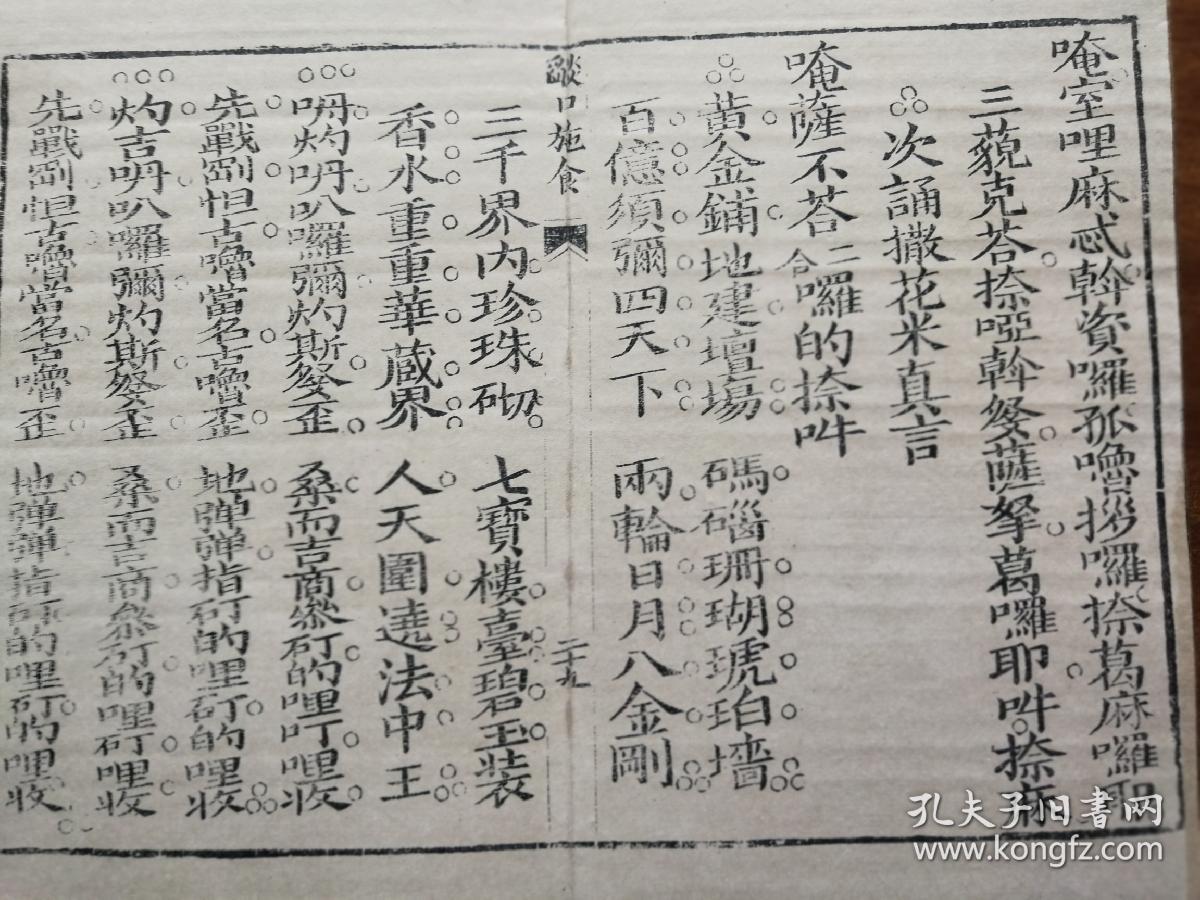 唵室哩麻忒斡資囉孤嚕拶囉捺葛麻囉耶
三藐克荅捺啞斡發薩拏葛囉耶吽捺麻
次誦撒花米真言
唵薩不荅二合囉的捺吽
黃金鋪地建壇場 碼碯珊瑚琥珀墻
百億須彌四天下 兩輪日月八金剛
燄口施食 二十九
三千界內珍珠砌 七寶樓臺碧玉裝
香水重重華藏界 人天圍遶法中王
灼 叭囉彌灼斯發歪 桑而吉商叅矴的哩叮哩收
先戰 怛古嚕當名古嚕歪 地彈彈指矴的哩矴的哩收
灼吉 叭囉彌灼斯發歪 桑而吉商叅矴的哩矴哩收
先戰 怛古嚕當名古嚕歪 地彈彈指矴的哩矴的哩收
孔夫子旧书网
www.kongfz.com